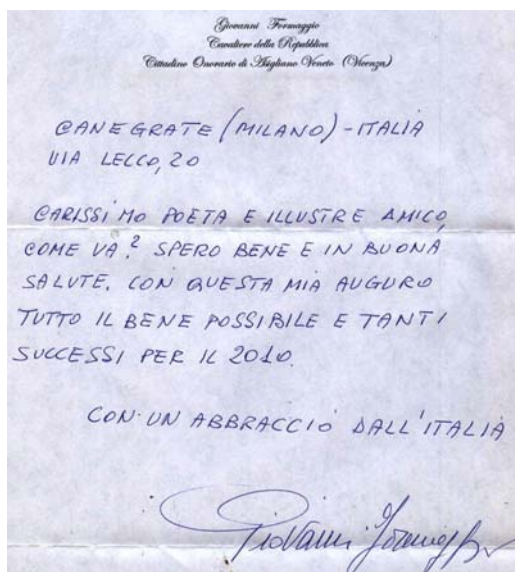 Giovanni Formaggio
Cavaliere della Repubblica
Cittadino Onorario di Asigliano Veneto (Vicenza)
CANEGRATE (MILANO) - ITALIA
VIA LECCO, 20
CARISSIMO POETA E ILLUSTRE AMICO,
COME VA? SPERO BENE E IN BUONA
SALUTE. CON QUESTA MIA AUGURO
TUTTO IL BENE POSSIBILE E TANTI
SUCCESSI PER IL 2010.
CON UN ABBRACCIO DALL'ITALIA
Giovanni Formaggio